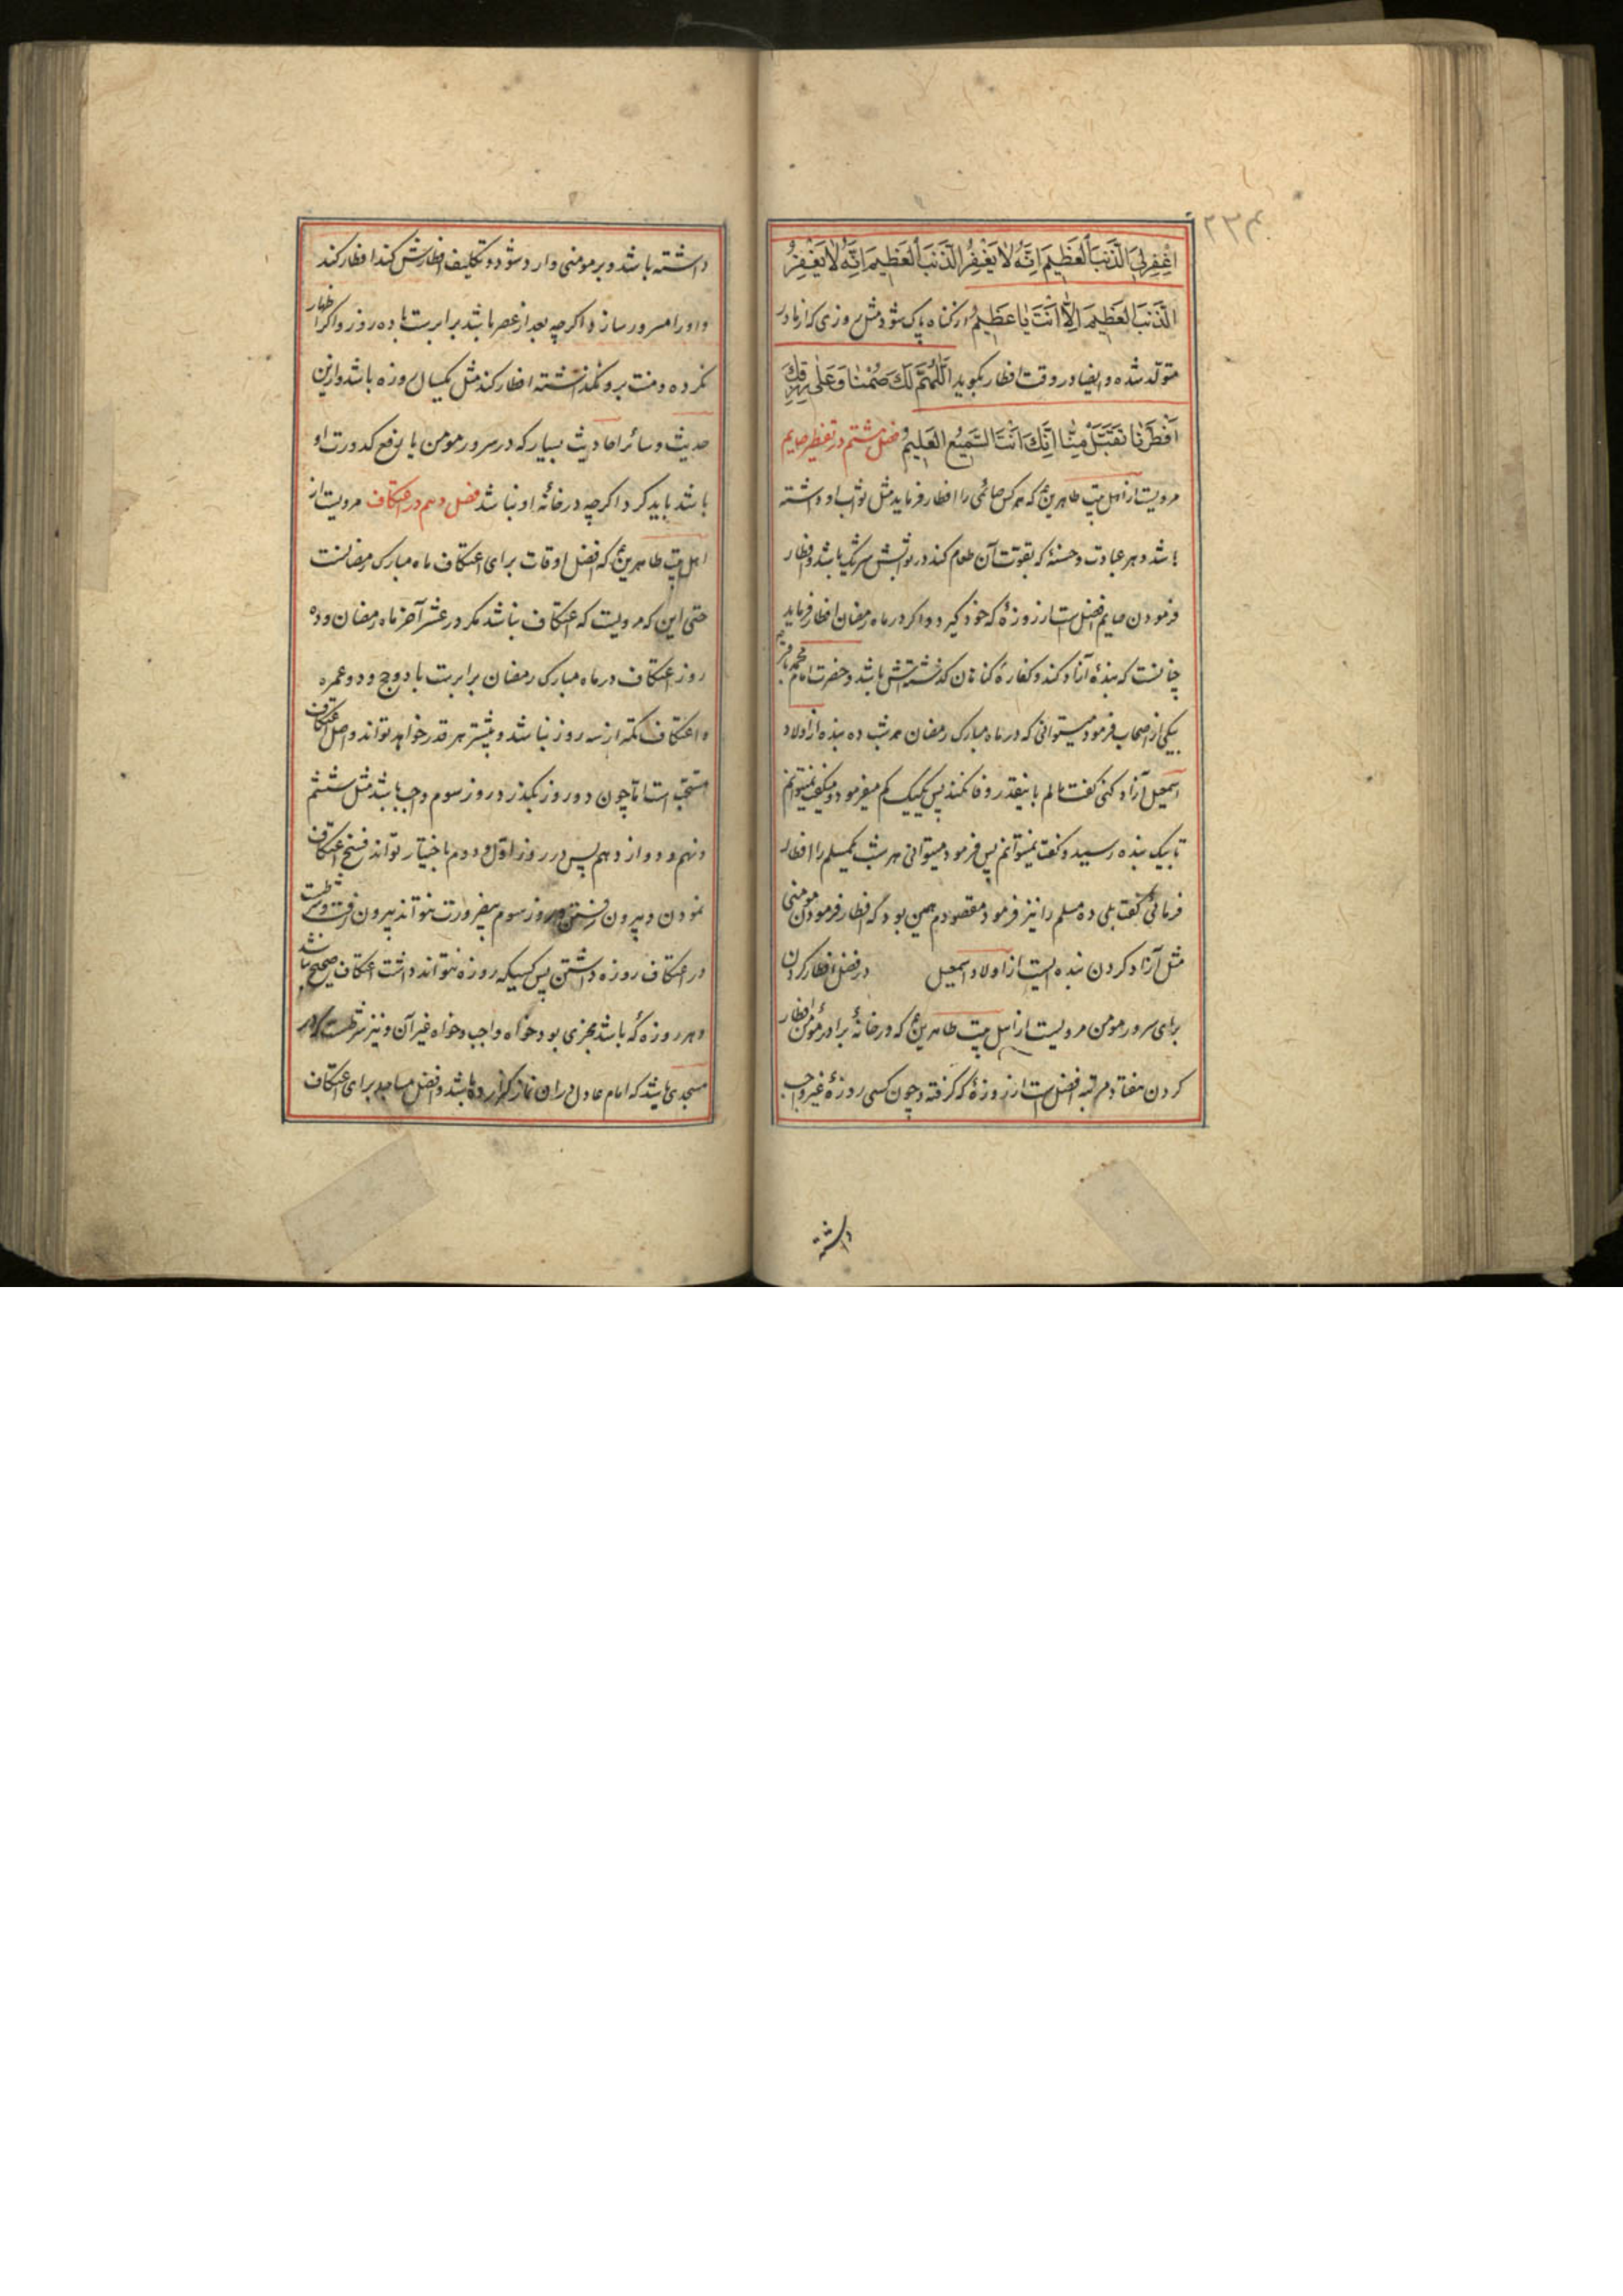 ۲۳۴
اغْفِرْ لِيَ الذَّنْبَ الْعَظِيمَ اِنَّهُ لٰا يَغْفِرُ الذَّنْبَ الْعَظِيمَ اِنَّهُ لٰا يَغْفِرُ
الذَّنْبَ الْعَظِيمَ اِلّٰا اَنْتَ يٰا عَظِيمُ از کناه پاک شود مثل روزی که از مادر
متولد شده و ایضا در وقت افطار بکوید اَللّٰهُمَّ لَكَ صُمْنٰا وَ عَلٰى رِزْقِكَ
اَفْطَرْنٰا فَتَقَبَّلْ مِنّٰا اِنَّكَ اَنْتَ السَّمِيعُ الْعَلِيمُ فصل هشتم در تفطیر صایم
مرویست از اهل بیت طاهرین ع که هر کس صائمی را افطار فرماید مثل ثواب او داشته
باشد و هر عبادت و حسنهٔ که بقوت آن طعام کند در ثوابش شریک باشد و افطار
فرمودن صایم افضل است از روزهٔ که خود کیرد و اکر در ماه رمضان افطار فرماید
چنانست که بندهٔ آزاد کند و کفارهٔ کناهان کذشتهاش باشد و حضرت امام محمد باقر
بیکی از اصحاب فرمود میتوانی که در ماه مبارک رمضان هر شب ده بنده از اولاد
اسمعیل آزاد کنی کفت مالم باینقدر وفا نکند پس یکیک کم میفرمود و میکفت نمیتوانم
تا بیک بنده رسید و کفت نمیتوانم پس فرمود میتوانی هر شب یکمسلم را افطار
فرمائی کفت بلی ده مسلم را نیز فرمود مقصودم همین بود که افطار فرمودن مومنی
مثل آزاد کردن بنده ایست از اولاد اسمعیل در فضل افطار کردن
برای سرور مومن مرویست از اهل بیت طاهرین ع که در خانهٔ برادر مؤمن افطار
کردن هفتاد مرتبه افضل است از روزهٔ که کرفته و چون کسی روزهٔ غیر واجب
داشته
داشته باشد و بر مومنی وارد شود و تکلیف افطارش کند افطار کند
و او را مسرور سازد اکرچه بعد از عصر باشد برابر است با ده روز و اکر اظهار
نکرده و منت برو نکذاشته افطار کند مثل یکسال روزه باشد و ازین
حدیث و سائر احادیث بسیار که در سرور مومن یا رفع کدورت او
باشد باید کرد اکرچه در خانهٔ او نباشد فصل دهم در اعتکاف مرویست از
اهل بیت طاهرین ع که افضل اوقات برای اعتکاف ماه مبارک رمضانست
حتی این که مرویست که اعتکاف نباشد مکر در عشر آخر ماه رمضان و ده
روز اعتکاف در ماه مبارک رمضان برابرست با دو حج و دو عمره
و اعتکاف کمتر از سه روز نباشد و بیشتر هر قدر خواهد تواند و اصل اعتکاف
مستحب است اما چون دو روز بکذرد روز سوم واجب باشد مثل ششم
و نهم و دوازدهم پس در روز اول و دوم باختیار تواند فسخ اعتکاف
نمودن و بیرون رفتن و روز سوم بیضرورت نتواند بیرون رفت و شرطست
در اعتکاف روزه داشتن پس کسیکه روزه نتواند داشت اعتکاف صحیح نباشد
و هر روزهٔ که باشد مجزی بود خواه واجب و خواه غیر آن و نیز شرطست که در
مسجدی باشد که امام عادل در ان نماز کزارده باشد و افضل مساجد برای اعتکاف